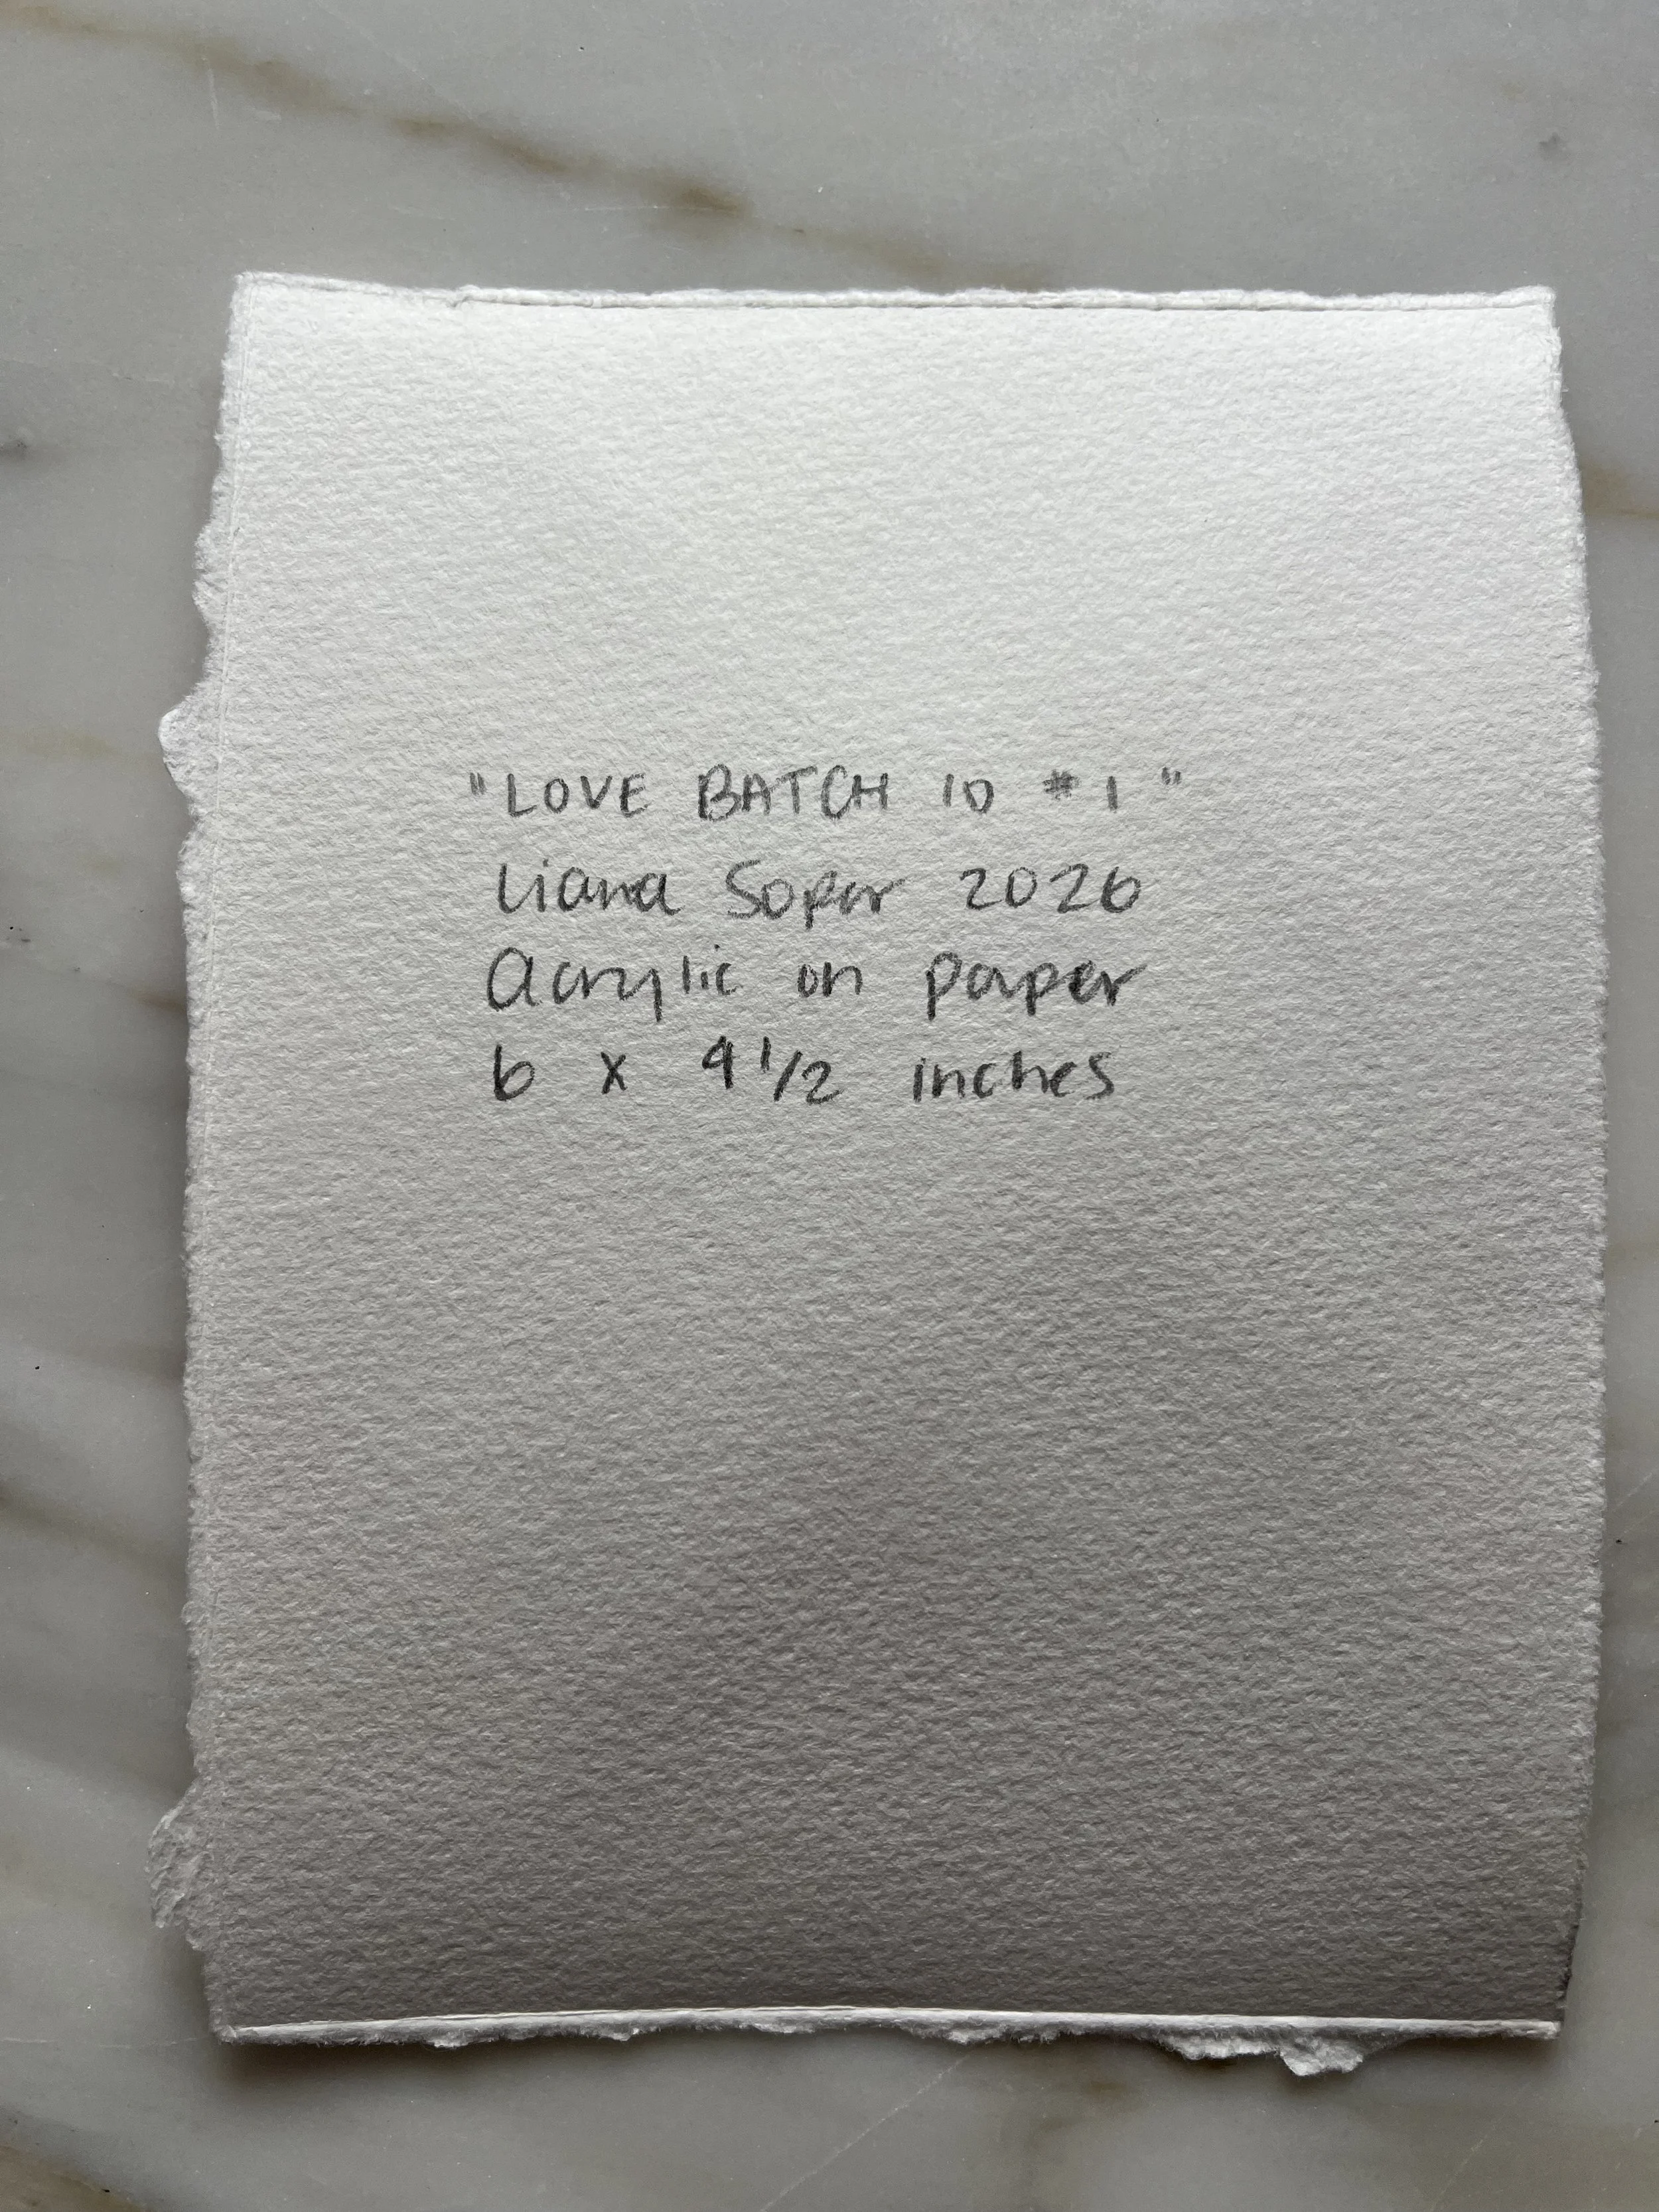 "LOVE BATCH 10 #1"
Liana Soper 2026
Acrylic on paper
6 x 4 1/2 inches